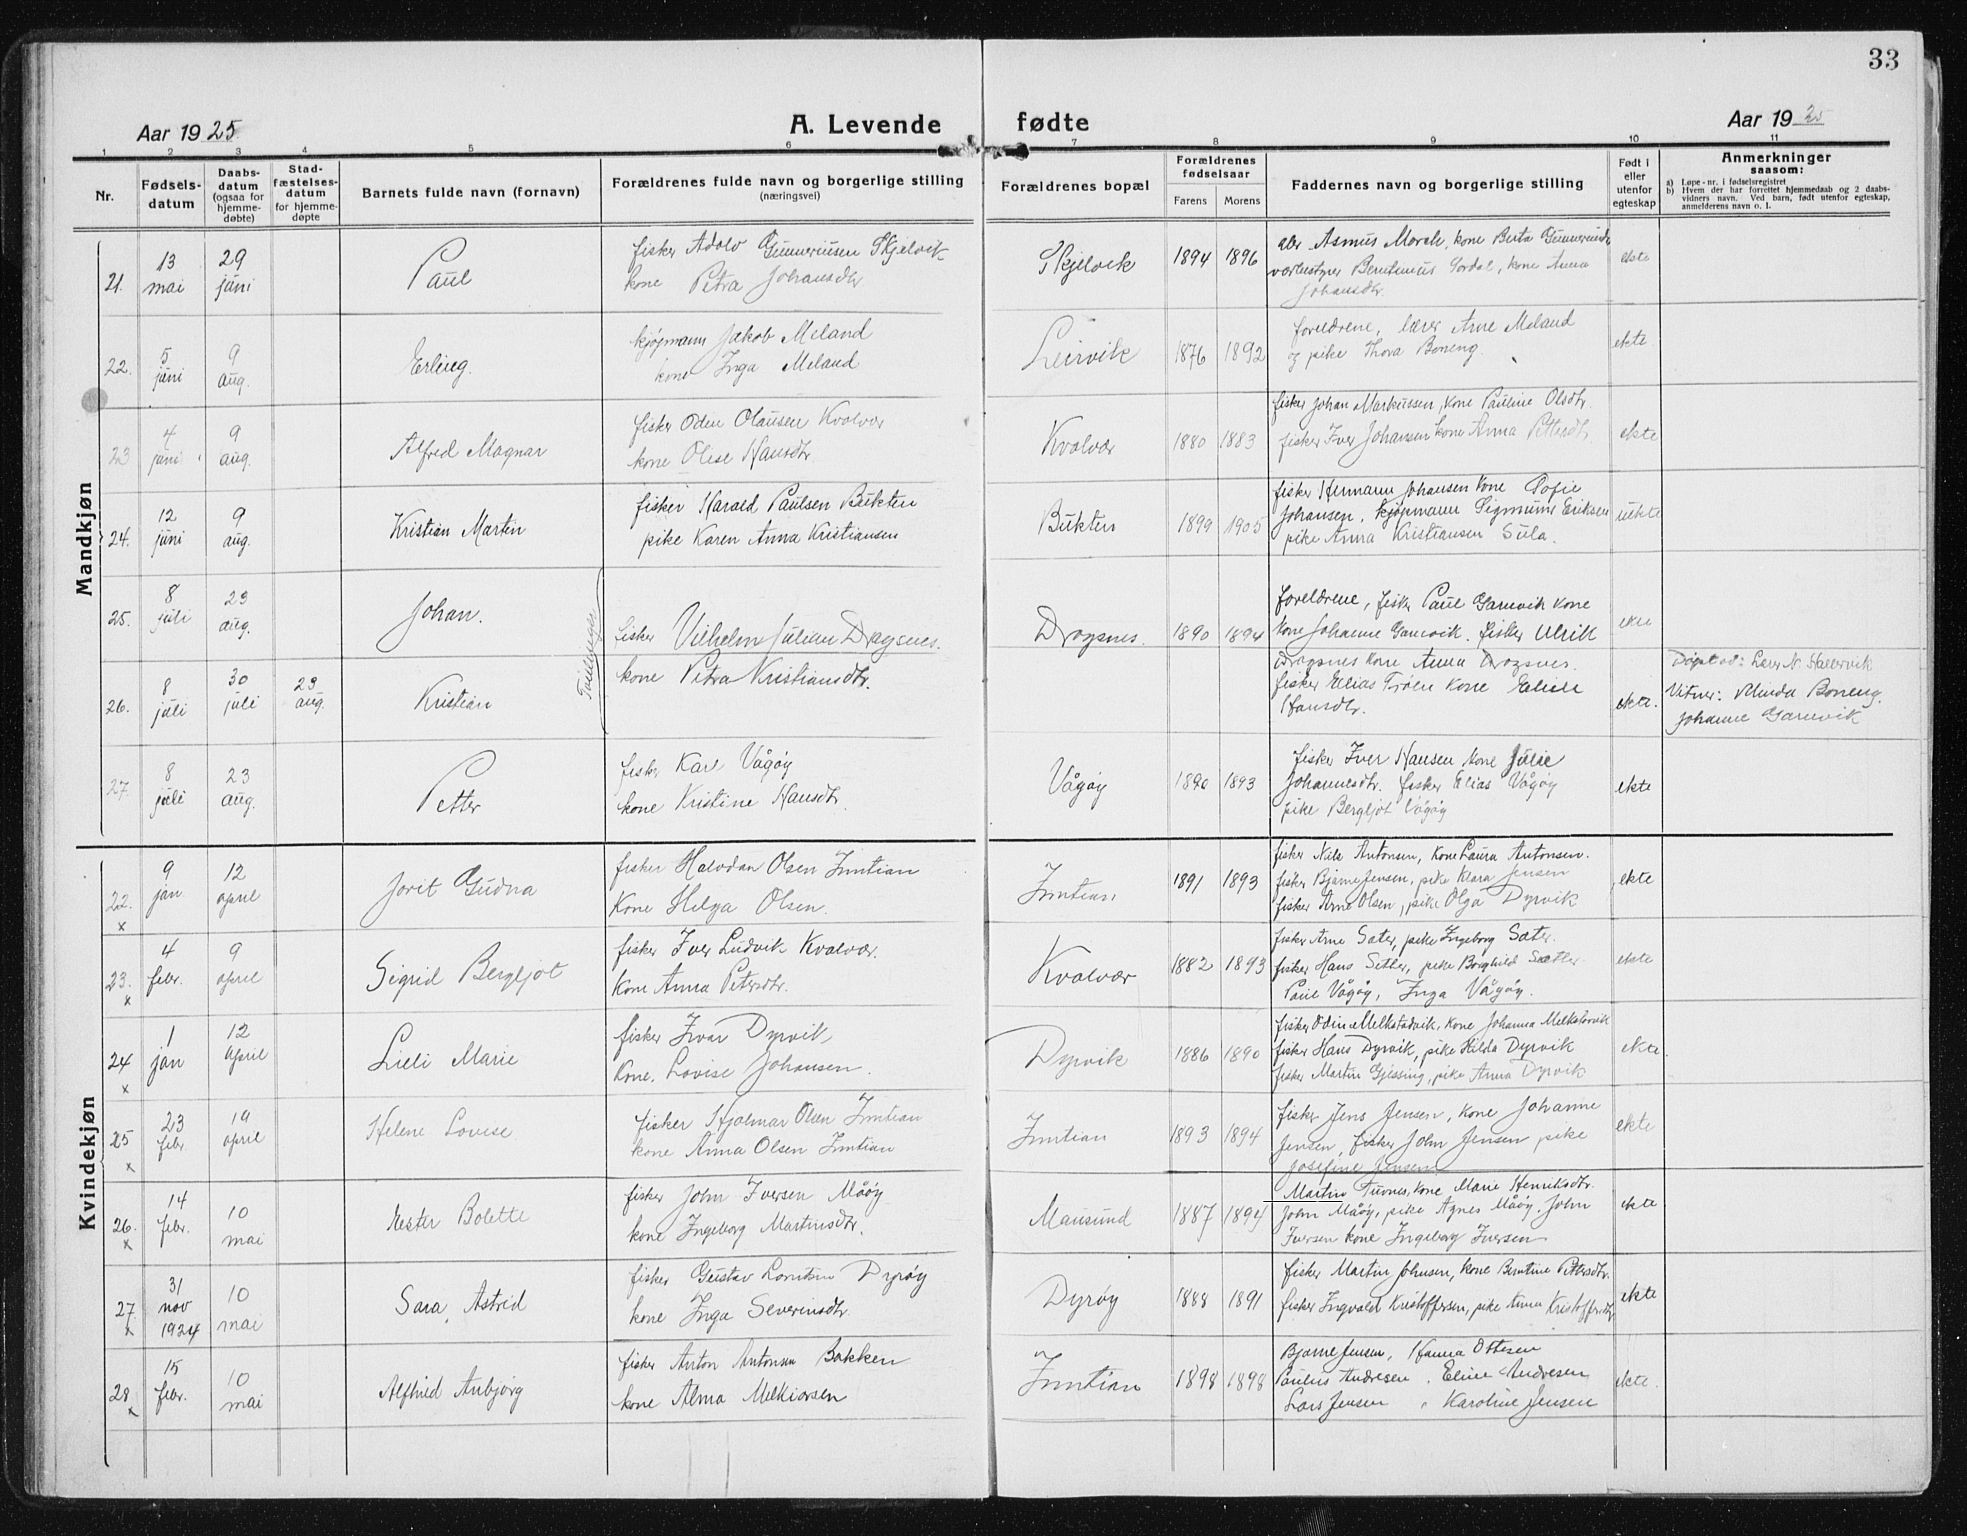 33
Aar 1925.
A. Levende fødte
Aar 1925
1 2 3 4 5 6 7 8 9 10 11
Nr.
Fødsels-
datum
Daabs-
datum
(ogsaa for
hjemme-
døbte)
Stad-
fæstelses-
datum
for hjemme-
døpte
Barnets fulde navn (fornavn)
Forældrenes fulde navn og borgerlige stilling
(næringsvei)
Forældrenes bopæl
Forældrenes
fødselsaar
Farens Morens
Faddernes navn og borgerlige stilling
Født i
eller
utenfor
egteskap
Anmerkninger
saasom:
a) Løpe-nr. i fødselsregistret
b) Hvem der har forrettet hjemmedaab og 2 daabs-
vidners navn. Ved barn, født utenfor egteskap,
anmelderens navn o. l.
Mandkjøn
21. 13 mai 29 juni Paul
fisker Adolv Gunneriusen Skjelvik
kone Petra Johansdtr
Skjelvik 1894 1896
Asmus Morsk, kone Berta
Gordal, kone Anna
Johansdtr.
ekte
22. 5 juni 9 aug. Erling.
kjøpmann Jakob Meland
kone Inga Meland
Leirvik 1876 1892
foreldrene, lærer Arne Meland
og pike Thora Boneng.
ekte
23 4 juni 9 aug. Alfred Magnar
fisker Odin Olausen Kvalvær
kone Olise Hansdtr
Kvalvær 1880 1883
fisker Johan Markussen, kone Pauline Olsdtr.
fisker Iver Johansen kone Anna Pettersdtr.
ekte
24. 12 juni 9 aug. Kristian Martin
fisker Harald Paulsen Bukten
pike Karen Anna Kristiansen
Bukten 1899 1905
fisker Hermann Johansen kone Sofie
Johansen, kjøpmann Sigmund Eriksen
pike Anna Kristiansen Sula.
uekte
25. 8 juli 23 aug. Johan.
Tvillinger
fisker Vilhelm Julian Dragsnes.
kone Petra Kristiansdtr.
Dragsnes. 1890 1894
foreldrene, fisker Paul Garnvik kone
kone Johanne Garnvik. fisker Ulrik
Dragsnes kone Anna Dragsnes.
fisker Elias Trøen kone Elise
Hansdtr.
ekte
26. 8 juli 30 juli 23 aug. Kristian
ekte.
Døpt av: Lærer N. Hallervik
Vitner: Minda Boneng.
Johanne Garnvik
27. 8 juli 23 aug. Petter
fisker Karl Vågøy
kone Kristine Hansdtr.
Vågøy 1890 1893
fisker Iver Hansen kone Julie
Johannesdtr. fisker Elias Vågøy
pike Bergljot Vågøy
ekte
Kvindekjøn
22. x 9 jan 12 april Jorit Gudna
fisker Halvdan Olsen Inntian
Kone Helga Olsen.
Inntian 1891 1893
fisker Nils Antonsen, kone Laura Antonsen.
fisker Bjarne Jensen, pike Klara Jensen
fisker Arne Olsen, pike Olga Dyrvik
ekte
23. x 4 febr. 9 april Sigrid Bergljot
fisker Iver Ludvik Kvalvær.
Kone Anna Petersdtr.
Kvalvær 1882 1893
fisker Arne Sater, pike Ingeborg Sater.
fisker Hans Setter, pike Borghild Sætter
Paul Vågøy, Inga Vågøy.
ekte
24 x 1 jan 12 april Lilli Marie
fisker Ivar Dyrvik,
Kone. Lovise Johansen.
Dyrvik 1886 1890
fisker Odin Melkstadvik, kone Johanna Melkstavik
fisker Hans Dyrvik, pike Hilda Dyrvik
fisker Martin Gjessing, pike Anna Dyrvik
ekte.
25 x 23 febr 19 april Helene Lovise
fisker Hjalmar Olsen Inntian
kone Anna Olsen Inntian
Inntian 1893 1894
fisker Jens Jensen, kone Johanne
Jensen, fisker John Jensen pike
Josefine Jensen
ekte
26. x 14 febr. 10 mai Nester Bolette
fisker John Iversen Måøy
kone Ingeborg Martinsdtr.
Mausund 1887 1894
Martin Tuvnes, kone Marie Henriksdtr.
John Måøy, pike Agnes Måøy, John
Iversen kone Ingeborg Iversen
ekte
27 x 31 nov 1924 10 mai Sara Astrid
fisker Gustav Lorntsen Dyrøy
kone Inga Severinsdtr.
Dyrøy 1888 1891
fisker Martin Johnsen, kone Berntine Pettersdtr.
fisker Ingvald Kristoffersen, pike Anna Kristoffersdtr
ekte
28 x 15 febr. 10 mai Alfhild Anbjørg
fisker Anton Antonsen Bakken
kone Alma Melkiorsen
Inntian 1898 1898
Bjarne Jensen, Hanna Ottesen
Paulus Andresen, Eline Andresen
Lars Jensen, Karoline Jensen
ekte.